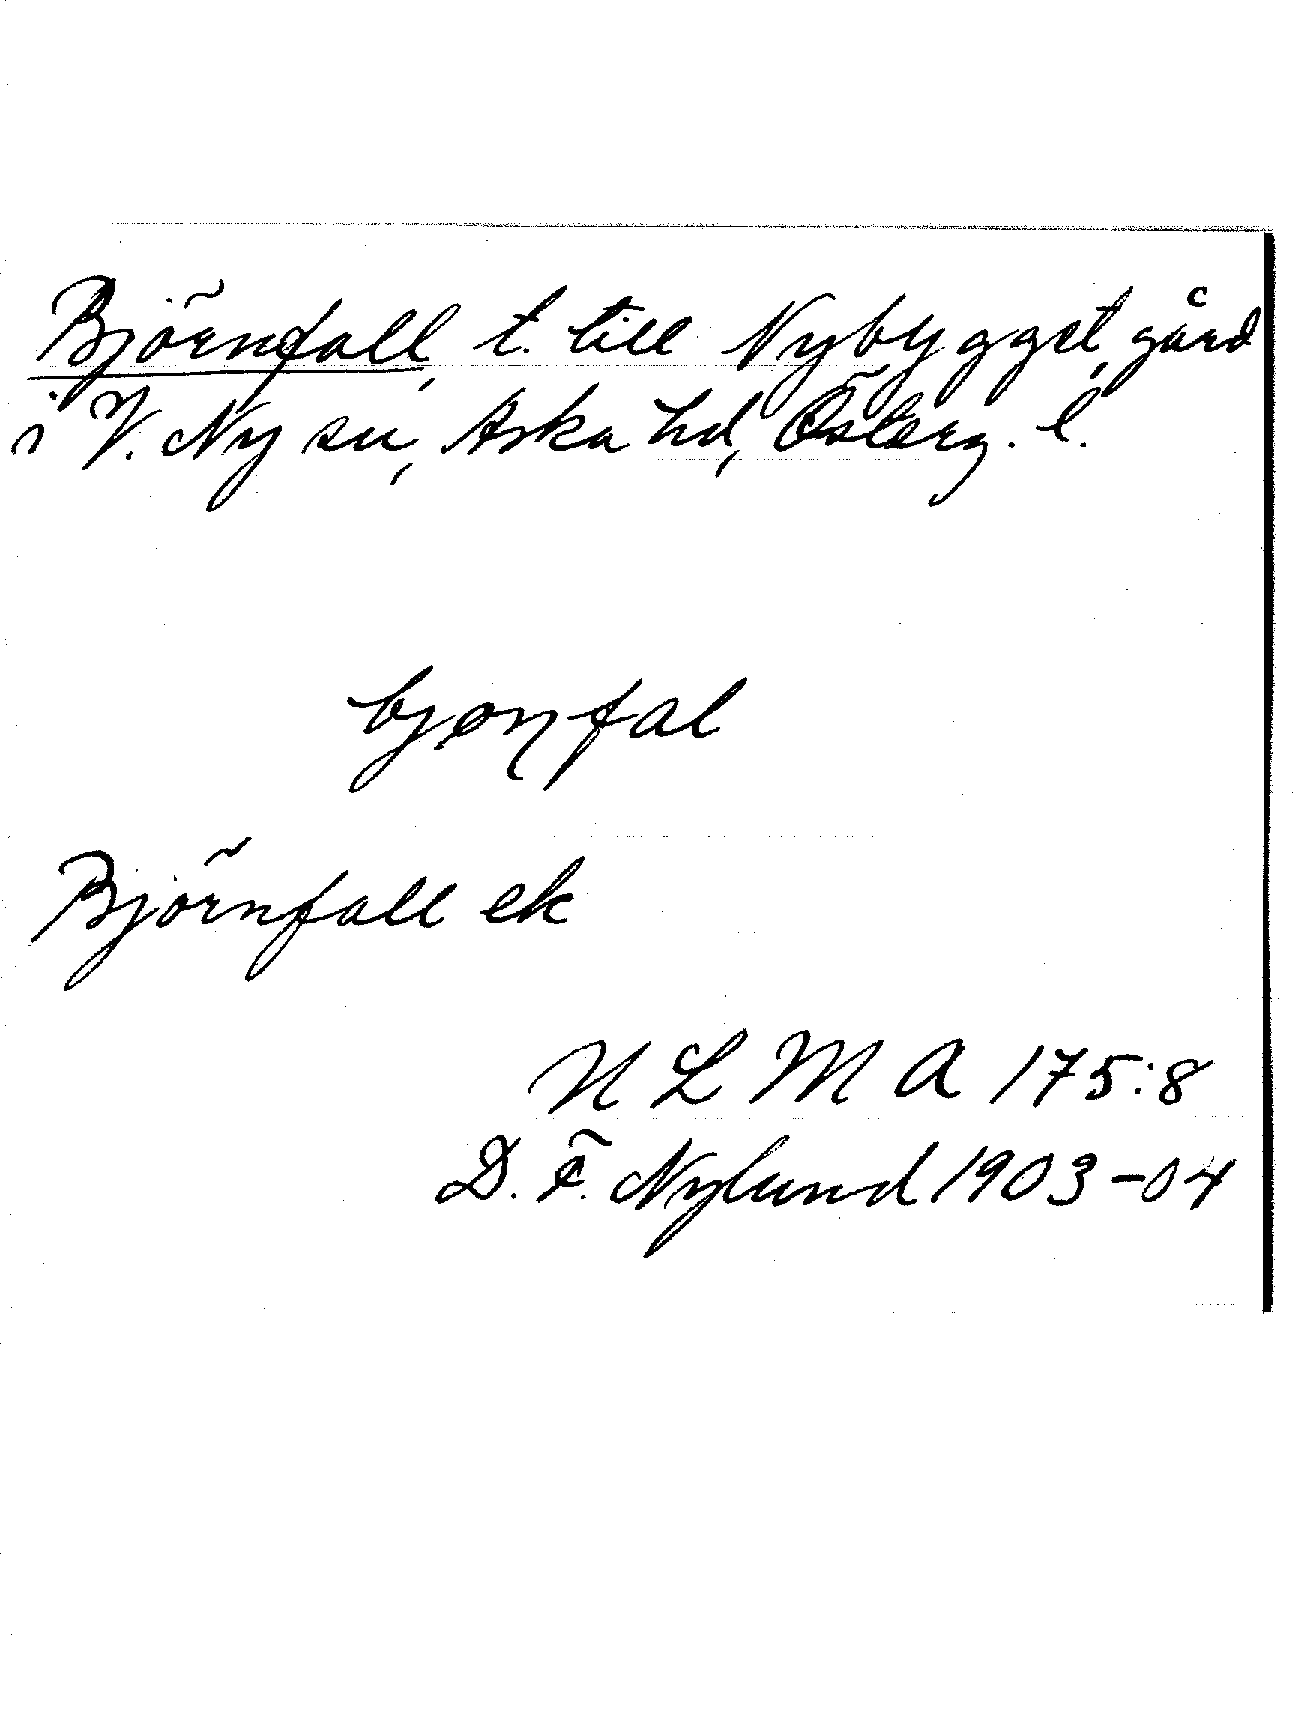 Björnfall, t. till Nybygget, gård
i V. Ny sn, Aska hd, Österg. l.
bjɵɳfal
Björnfall ek
N L M A 175:8
D. F. Nylund 1903-04